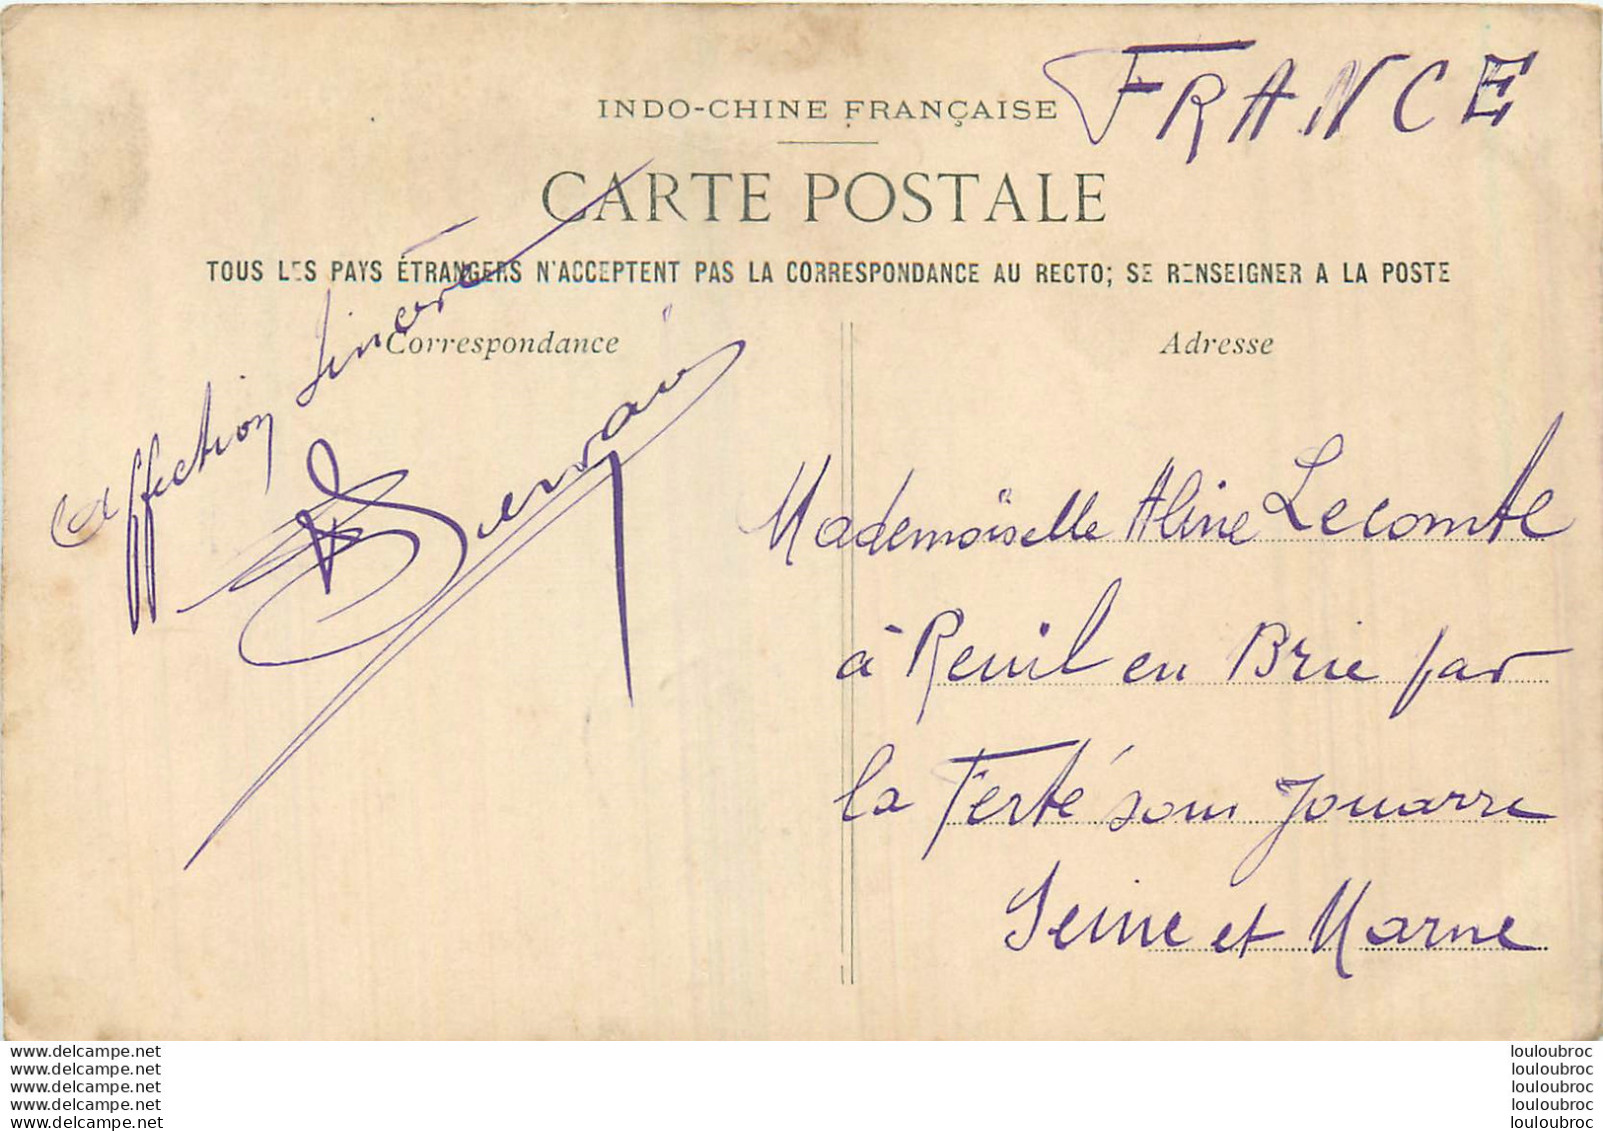 FRANCE
INDO-CHINE FRANÇAISE
CARTE POSTALE
TOUS LES PAYS ÉTRANGERS N'ACCEPTENT PAS LA CORRESPONDANCE AU RECTO; SE RENSEIGNER A LA POSTE
Correspondance
Affection Sincère
Adresse
Mademoiselle Aline Lecomte
à Reuil en Brie par
la Ferté sous Jouarre
Seine et Marne
www.delcampe.net
www.delcampe.net
www.delcampe.net
www.delcampe.net
www.delcampe.net
louloubroc
louloubroc
louloubroc
louloubroc
louloubroc